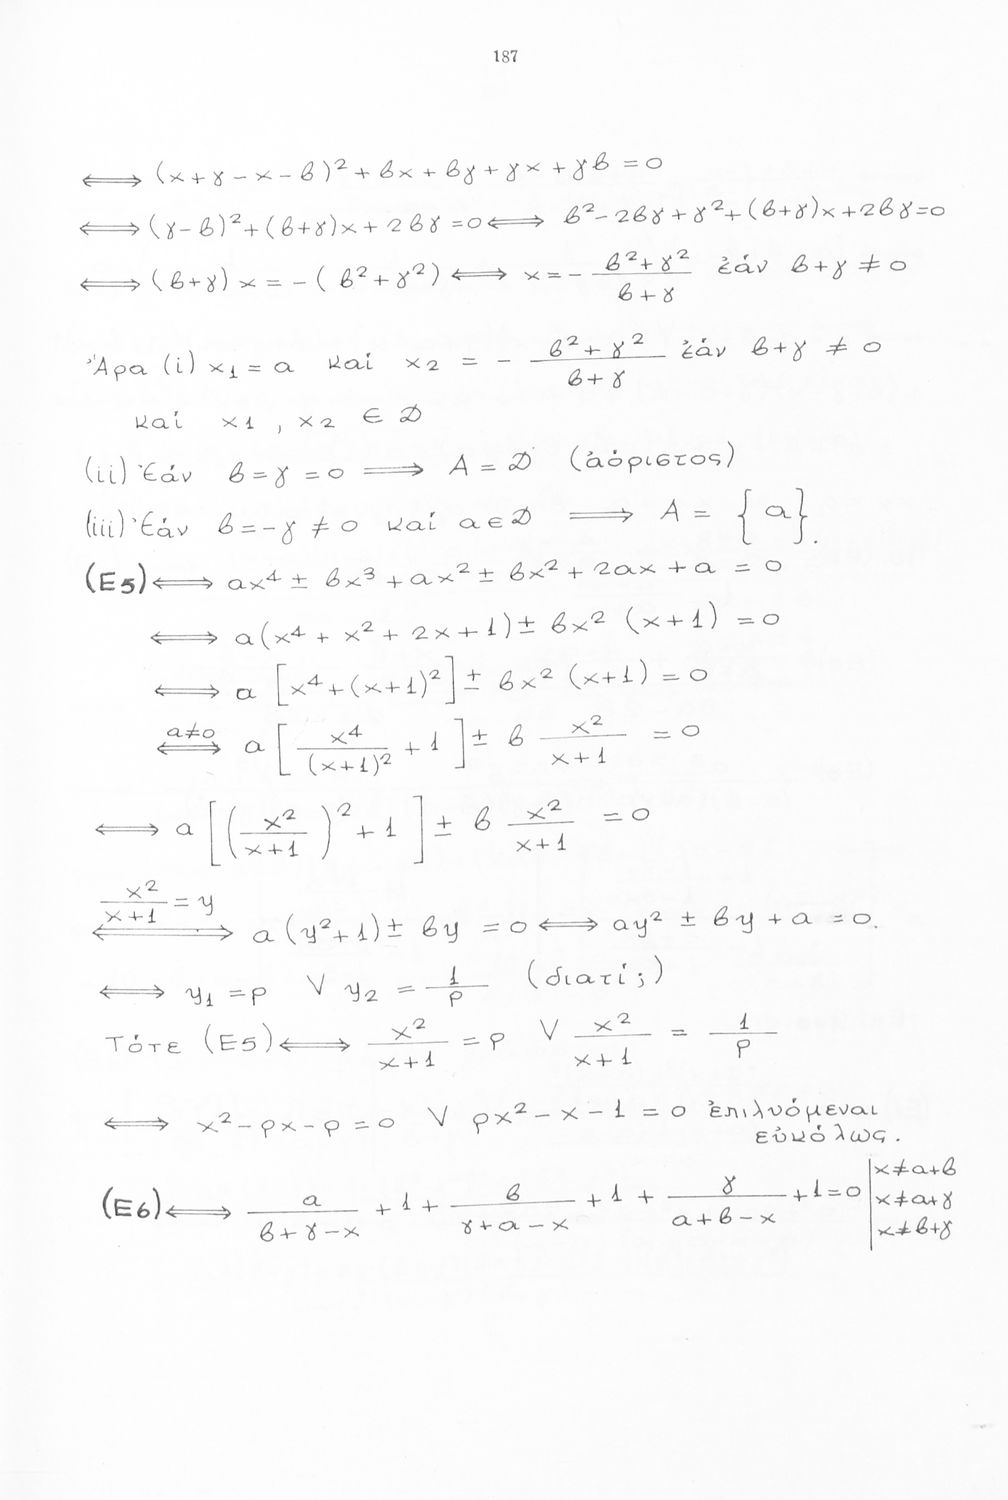 187
⟺ (x+γ-x-β)² + βx + βγ + γx + γβ = 0
⟺ (γ-β)² + (β+γ)x + 2βγ = 0 ⟺ β² - 2βγ + γ² + (β+γ)x + 2βγ = 0
⟺ (β+γ)x = -(β²+γ²) ⟺ x = - (β²+γ²)/(β+γ) ἐάν β+γ ≠ 0
Ἄρα (i) x₁ = α καί x₂ = - (β²+γ²)/(β+γ) ἐάν β+γ ≠ 0
καί x₁, x₂ ∈ D
(ii) Ἐάν β = γ = 0 ⟹ A = D (ἀόριστος)
(iii) Ἐάν β = -γ ≠ 0 καί α ∈ D ⟹ A = {α}.
(E5) ⟺ αx⁴ ± βx³ + αx² ± βx² + 2αx + α = 0
⟺ α(x⁴ + x² + 2x + 1) ± βx² (x+1) = 0
⟺ α [x⁴ + (x+1)²] ± βx² (x+1) = 0
α≠0 ⟺ α [x⁴/(x+1)² + 1] ± β x²/(x+1) = 0
⟺ α [(x²/(x+1))² + 1] ± β x²/(x+1) = 0
x²/(x+1) = y ⟺ α(y²+1) ± βy = 0 ⟺ αy² ± βy + α = 0.
⟺ y₁ = ρ ∨ y₂ = 1/ρ (διατί;)
Τότε (E5) ⟺ x²/(x+1) = ρ ∨ x²/(x+1) = 1/ρ
⟺ x² - ρx - ρ = 0 ∨ ρx² - x - 1 = 0 ἐπιλυόμεναι
εὐκόλως.
(E6) ⟺ α/(β+γ-x) + 1 + β/(γ+α-x) + 1 + γ/(α+β-x) + 1 = 0 | x≠α+β
x≠α+γ
x≠β+γ